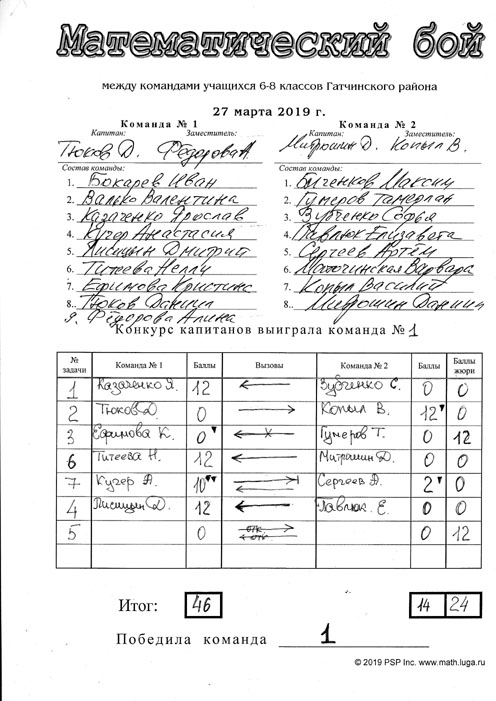 Математический бой
между командами учащихся 6-8 классов Гатчинского района
27 марта 2019 г.
Команда № 1 Команда № 2
Капитан: Заместитель: Капитан: Заместитель:
Тюков Д. Фёдорова А. Митрошин Д. Копыл В.
Состав команды: Состав команды:
1. Бокарев Иван 1. Бученков Максим
2. Валько Валентина 2. Гумеров Тамерлан
3. Казаченко Ярослав 3. Зубченко Софья
4. Кучер Анастасия 4. Павлюк Елизавета
5. Лисицын Дмитрий 5. Сергеев Артём
6. Титеева Нелли 6. Маточинская Варвара
7. Ефимова Кристина 7. Копыл Василий
8.. Тюков Даниил 8.. Митрошин Даниил
9. Фёдорова Алина
Конкурс капитанов выиграла команда № 1
№ задачи Команда № 1 Баллы Вызовы Команда № 2 Баллы Баллы жюри
1 Казаченко Я. 12 Зубченко С. 0 0
2 Тюков Д. 0 Копыл В. 12 0
3 Ефимова К. 0 Гумеров Т. 0 12
6 Титеева Н. 12 Митрошин Д. 0 0
7 Кучер А. 10 Сергеев А. 2 0
4 Лисицын Д. 12 Павлюк Е. 0 0
5 0 отк отк 0 12
Итог: 46 14 24
Победила команда 1
© 2019 PSP Inc. www.math.luga.ru